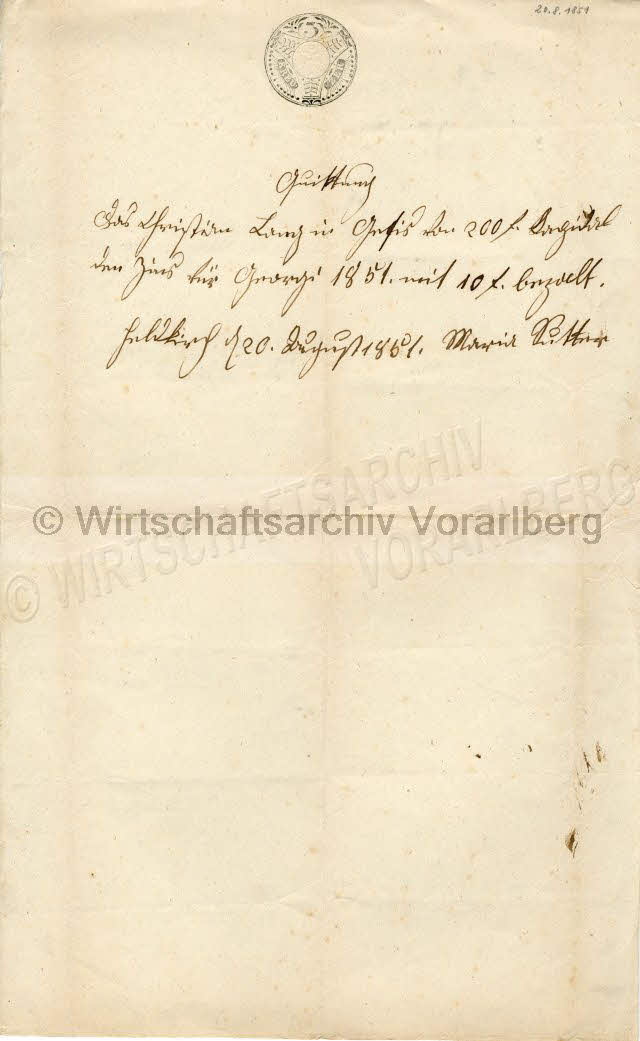 20.8.1851
3
Quittung
Das Christian Lang in Gefis von 200 f. Kapidal
den Zins für Georgi 1851. mit 10 f. bezalt.
Feldkirch d 20. August 1851. Maria Sutter
© WIRTSCHAFTSARCHIV VORARLBERG
© Wirtschaftsarchiv Vorarlberg